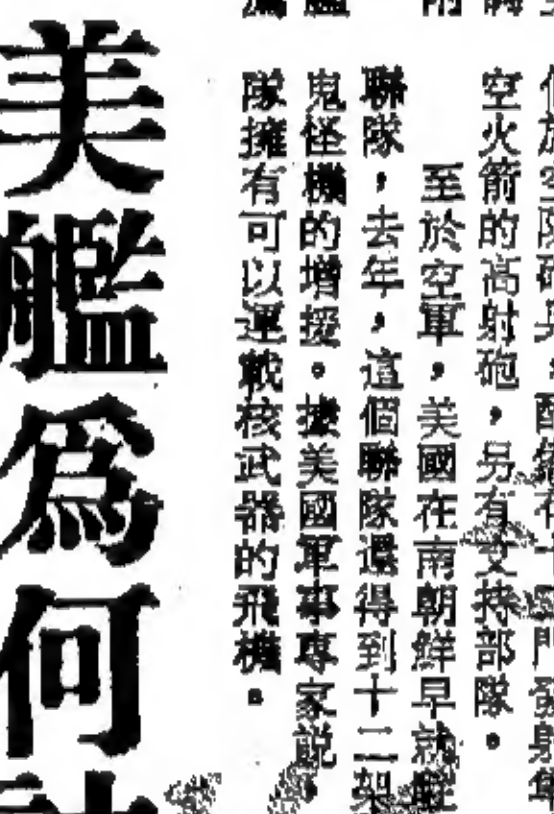 空火箭的高射砲，另有支持部隊。
至於空軍，美國在南朝鮮早就
聯隊，去年，這個聯隊還得到十二架
鬼怪機的增援。據美國軍事專家說，
隊擁有可以運載核武器的飛機。
美艦為何